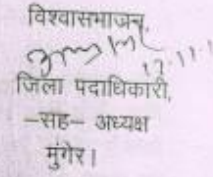 विश्वासभाजन,
जिला पदाधिकारी,
–सह– अध्यक्ष
मुंगेर।